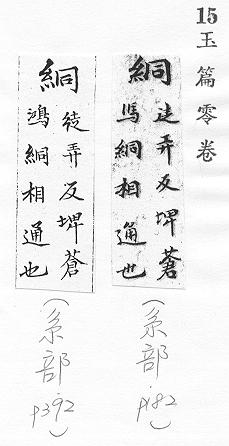 15玉篇零卷
絧
徒弄反埤蒼
絧相通也
(系部p182)
絧
徒弄反埤蒼
鴻絧相通也
(系部p392)